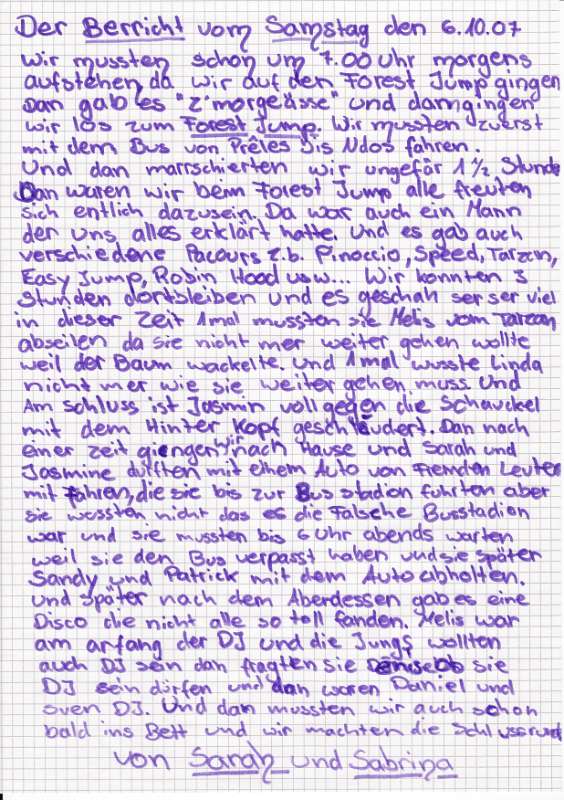 Der Berricht vom Samstag den 6.10.07
Wir mussten schon um 7.00 Uhr morgens
aufstehen da wir auf den Forest Jump gingen
Dan gab es "z'morgeässe" und damgingen
wir los zum Forest Jump. Wir mussten zuerst
mit dem Bus von Prêles bis Ndos fahren.
Und dan marrschierten wir ungefär 1 1/2 Stunde
Dan waren wir benn Forest Jump alle freuten
sich entlich dazusein. Da war auch ein Mann
der uns alles erklärt hatte. Und es gab auch
verschiedene Pacours z.b. Pinoccio, Speed, Tarzan,
Easy Jump, Robin Hood usw... Wir konnten 3
Stunden dortbleiben und es geschah ser ser viel
in dieser Zeit 1mal mussten sie Melis vom Tarzan
abseilen da sie nicht mer weiter gehen wollte
weil der Baum wackelte. Und 1mal wusste Linda
nicht mer wie sie weiter gehen muss. Und
Am schluss ist Jasmin voll gegen die Schauckel
mit dem Hinter Kopf geschleudert. Dan nach
einer zeit giengen wir nach Hause und Sarah und
Jasmine durften mit einem Auto von Fremden Leuten
mit fahren, die sie bis zur Bus stadion fuhrten aber
sie wussten nicht das es die Falsche Busstadion
war und sie mussten bis 6 Uhr abends warten
weil sie den Bus verpasst haben und sie später
Sandy und Patrick mit dem Auto abholten.
Und später nach dem Aberdessen gab es eine
Disco die nicht alle so toll fanden. Melis war
am anfang der DJ und die Jungs wollten
auch DJ sein dan fragten sie Denise ob sie
DJ sein dürfen und dan waren Daniel und
Sven DJ. Und dan mussten wir auch schon
bald ins Bett und wir machten die Schlussrund
von Sarah und Sabrina